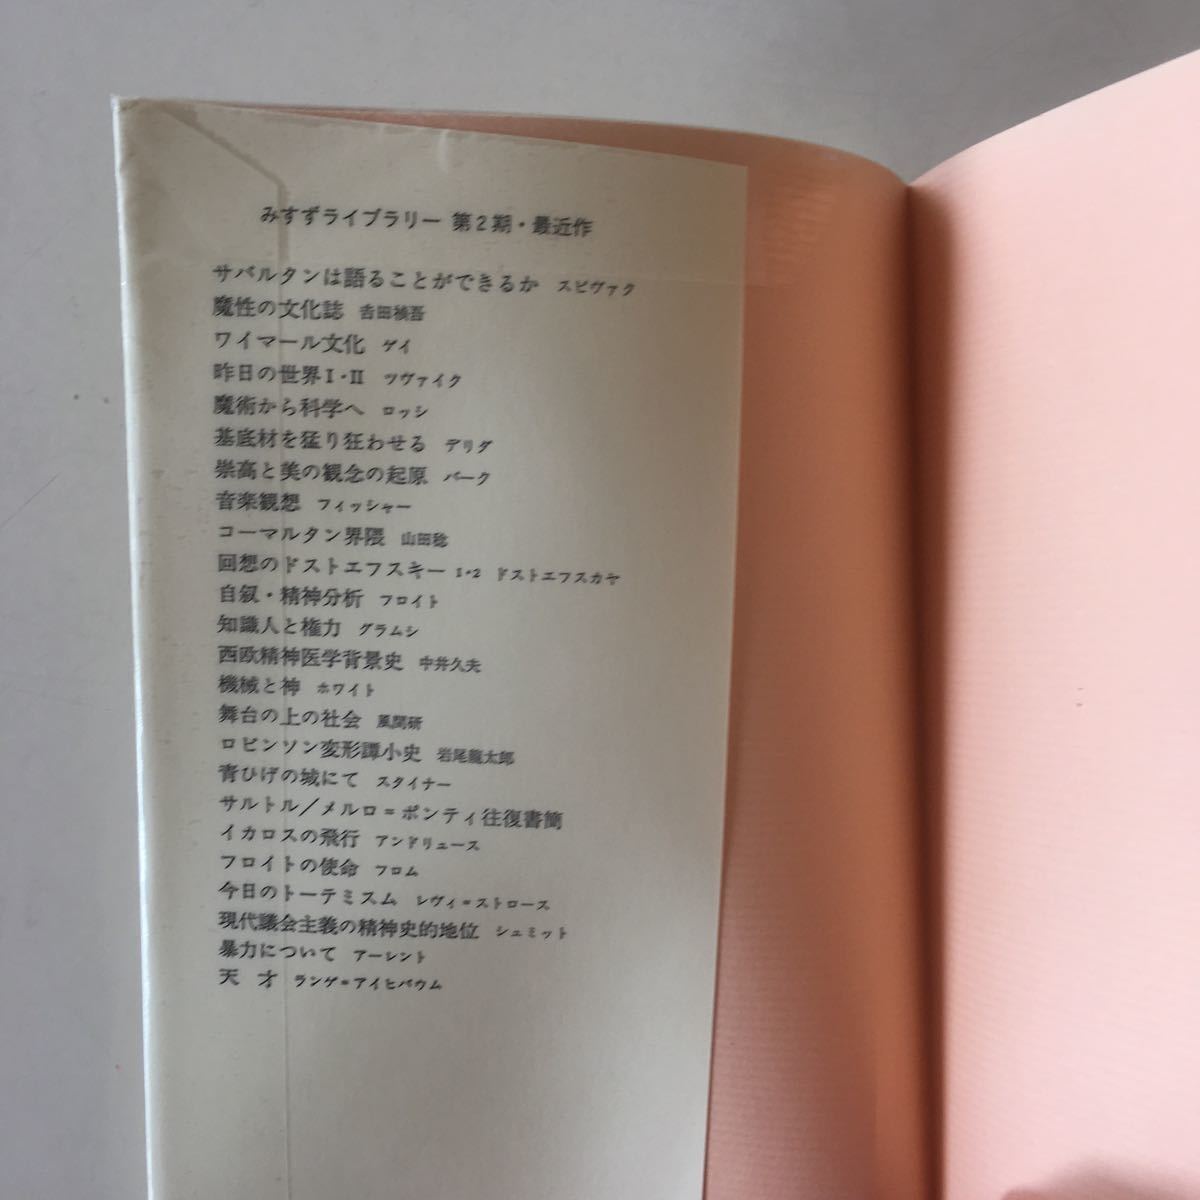 みすずライブラリー 第2期・最近作
サバルタンは語ることができるか スピヴァク
魔性の文化誌 吉田禎吾
ワイマール文化 ゲイ
昨日の世界I・II ツヴァイク
魔術から科学へ ロッシ
基底材を猛り狂わせる デリダ
崇高と美の観念の起原 バーク
音楽観想 フィッシャー
コーマルタン界隈 山田稔
回想のドストエフスキー 1・2 ドストエフスカヤ
自叙・精神分析 フロイト
知識人と権力 グラムシ
西欧精神医学背景史 中井久夫
機械と神 ホワイト
舞台の上の社会 風間研
ロビンソン変形譚小史 岩尾龍太郎
青ひげの城にて スタイナー
サルトル/メルロ=ポンティ往復書簡
イカロスの飛行 アンドリュース
フロイトの使命 フロム
今日のトーテミスム レヴィ=ストロース
現代議会主義の精神史的地位 シュミット
暴力について アーレント
天才 ランゲ=アイヒバウム